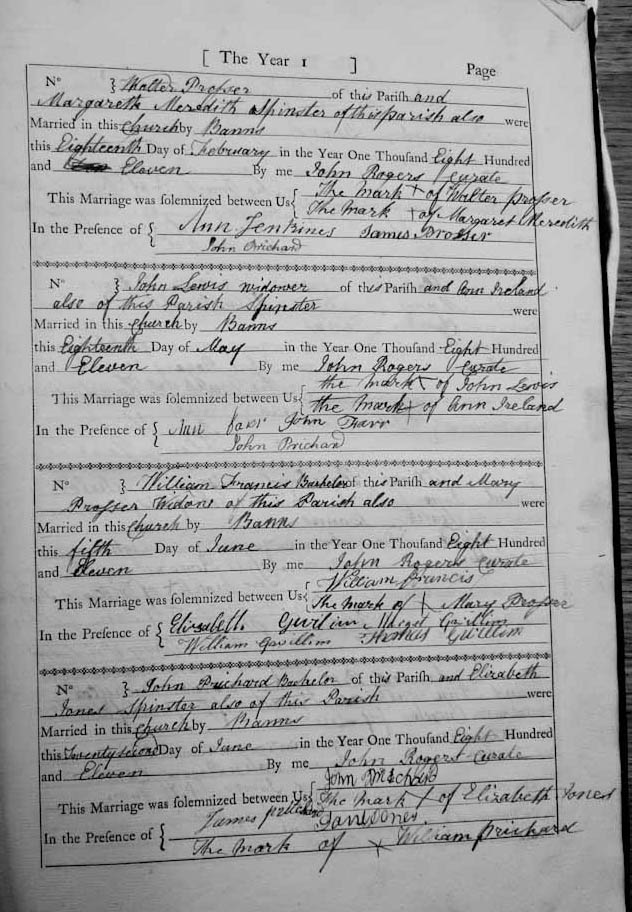 [ The Year 1 ] Page
No } Walter Prosser of this Parish and
Margareth Meredith Spinster of this parish also were
Married in this Church by Banns
this Eighteenth Day of February in the Year One Thousand Eight Hundred
and Eleven By me John Rogers Curate
This Marriage was solemnized between Us { The mark + of Walter Prosser
The mark + of Margaret Meredith
In the Presence of { Ann Jenkines James Prosser
John Prichard
No } John Lewis widower of this Parish and Ann Ireland
also of this Parish Spinster were
Married in this Church by Banns
this Eighteenth Day of May in the Year One Thousand Eight Hundred
and Eleven By me John Rogers Curate
This Marriage was solemnized between Us { the mark \ of John Lewis
the mark + of Ann Ireland
In the Presence of { Ann John
John Prichard
No } William Francis Bachelor of this Parish and Mary
Prosser Widow of this Parish also were
Married in this Church by Banns
this fifth Day of June in the Year One Thousand Eight Hundred
and Eleven By me John Rogers Curate
This Marriage was solemnized between Us { William Francis
The mark of \ Mary Prosser
In the Presence of { Elizabeth Gwilim Gwillim
William Gwillim Thomas Gwillim
No } John Prichard Bachelor of this Parish and Elizabeth
Jones Spinster also of this Parish were
Married in this Church by Banns
this Twenty second Day of June in the Year One Thousand Eight Hundred
and Eleven By me John Rogers Curate
This Marriage was solemnized between Us { John Prichard
The mark + of Elizabeth Jones
In the Presence of { James Jones
The mark of x William Prichard